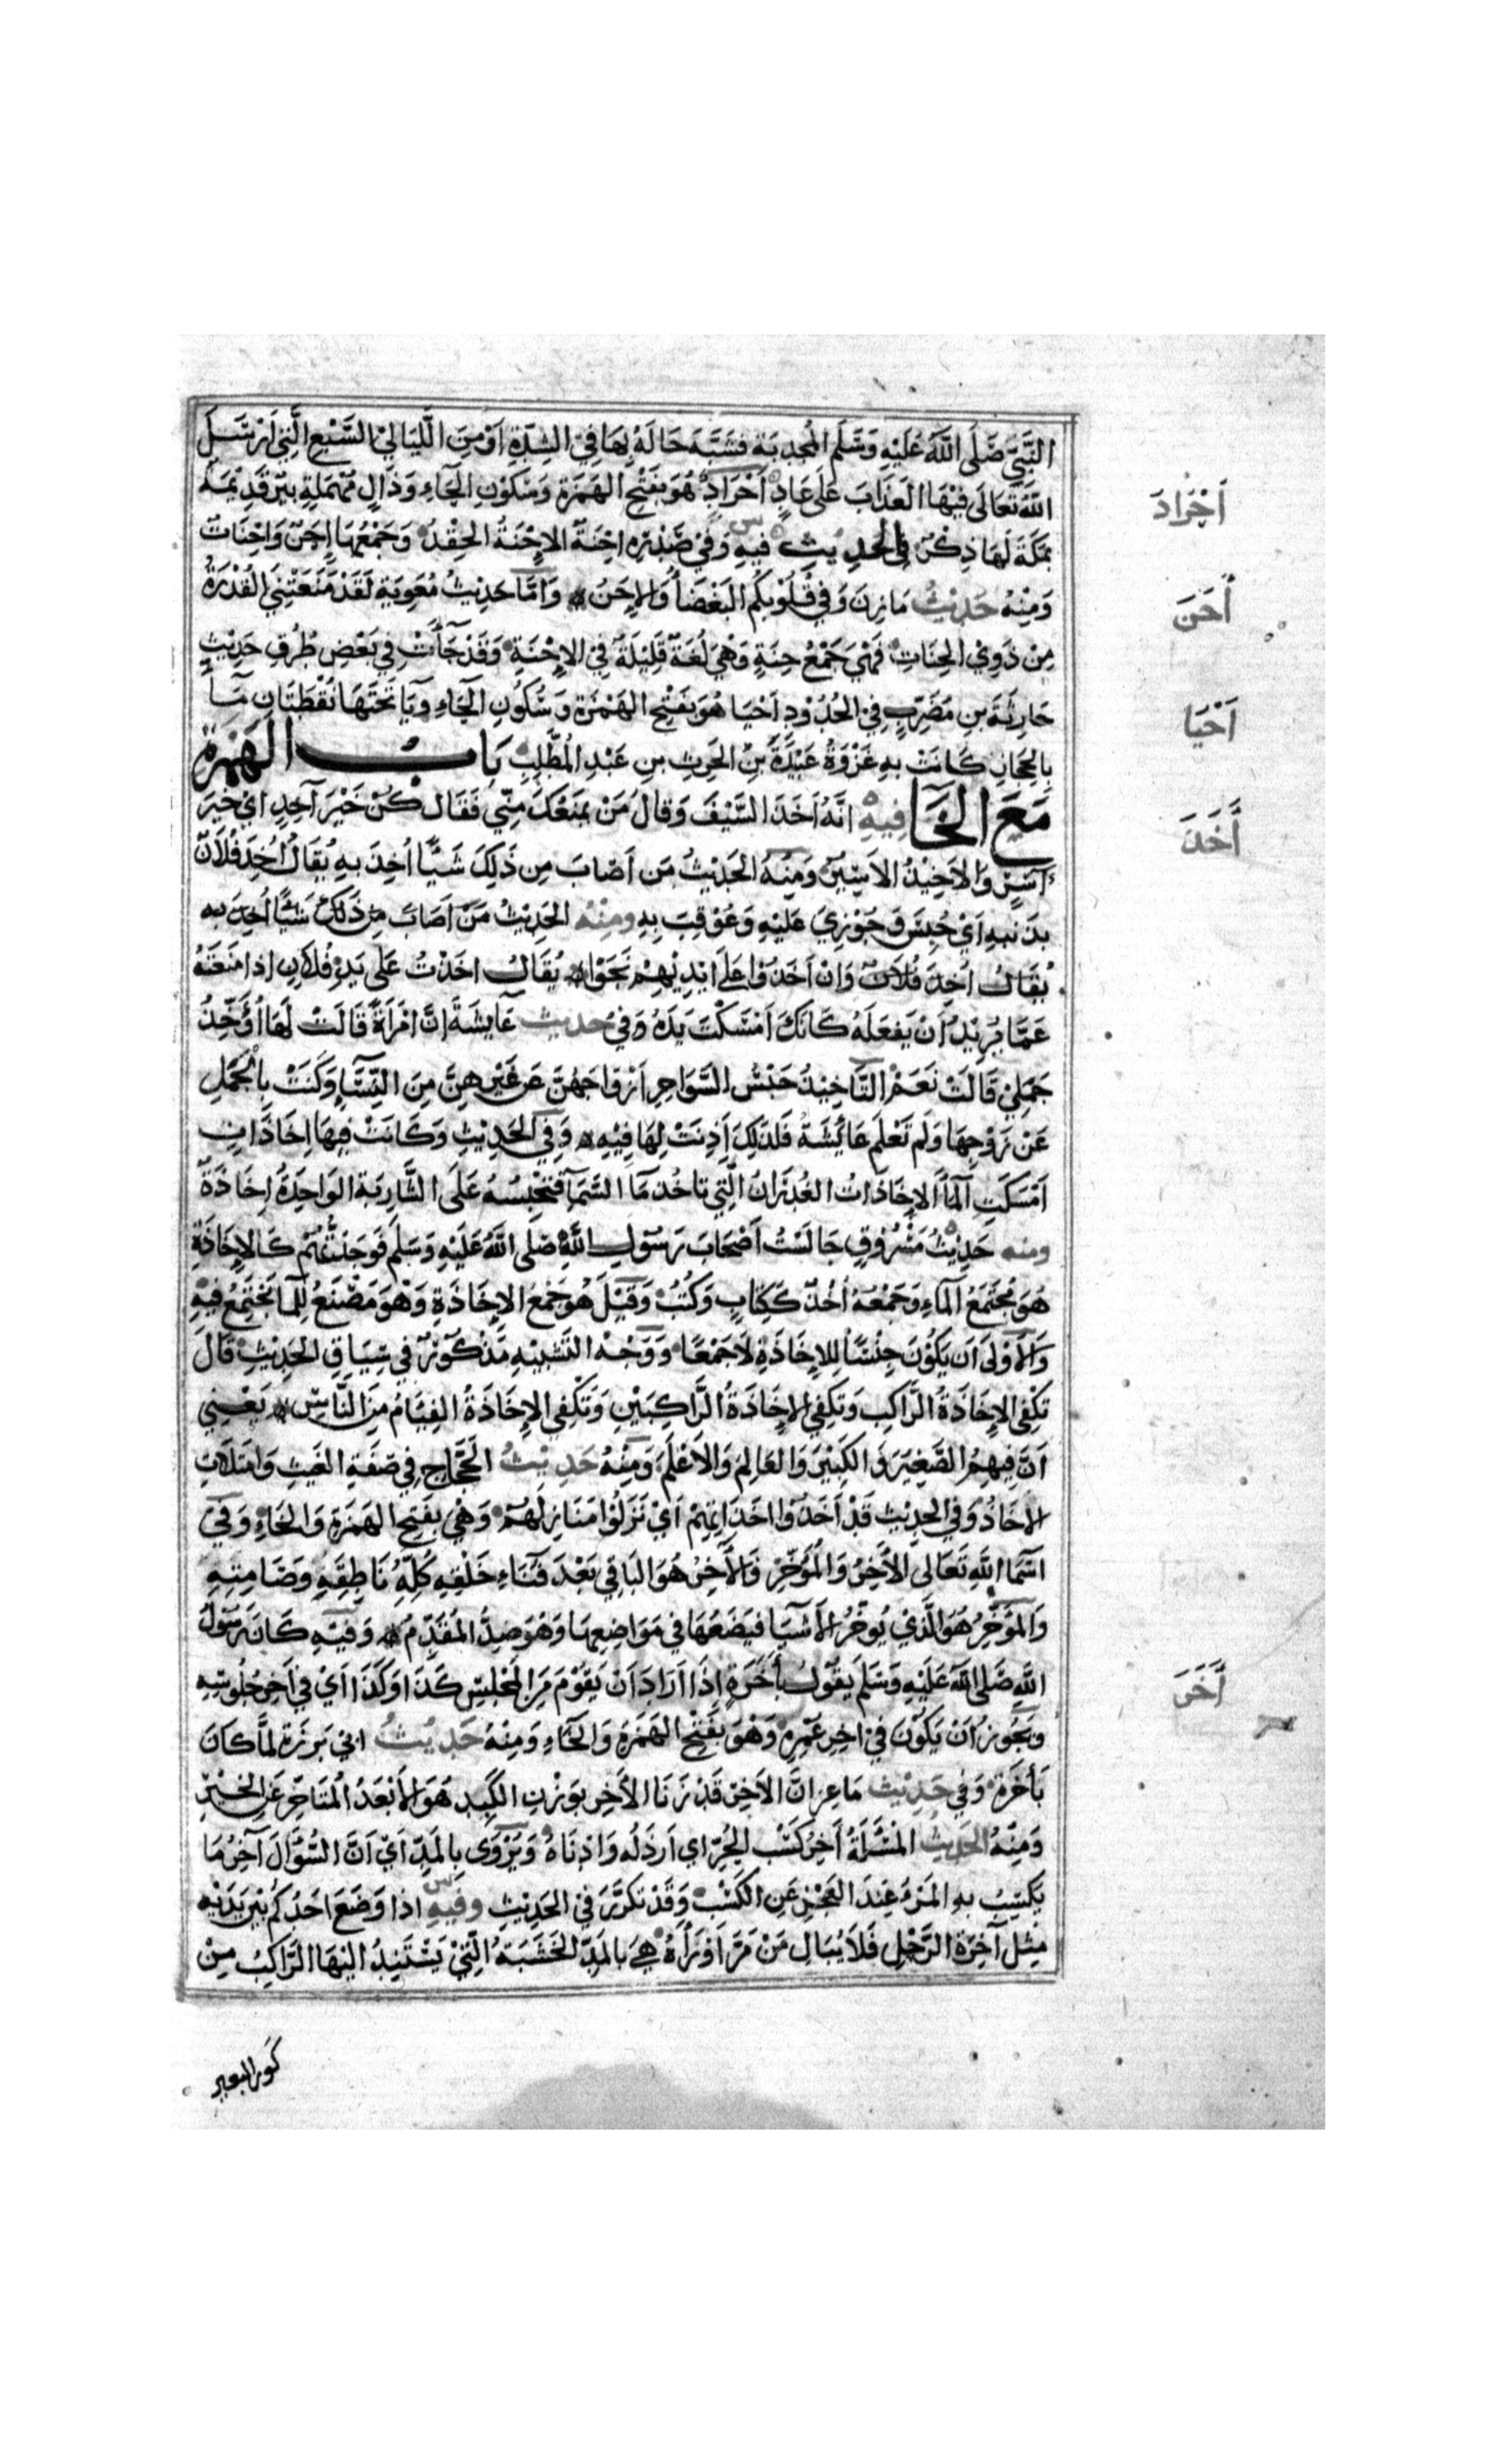 النَّبِيِّ صَلَّى اللَّهُ عَلَيْهِ وَسَلَّم المُجْدِبَةِ فشَبَّهَ حَالَهُ بِهَا فِي الشِدَّةِ اَوْ مِنَ اللَّيَالِي السَّبْعِ الَّتِي اَرْسَلَ
اللهُ تَعَالَى فِيْهَا العَذَابَ عَلَى عَادٍ اَحْرَادٌ هُوَ بِفَتْحِ الهَمزَة وَسُكُوْنِ الحَاءِ وَدَالٍ مُهْمَلَةٍ بِيرٌ قَدِيْمَةٌ
بِمَكَّةَ لَهَا ذِكْرٌ فِي الحَدِيْثِ فيهِ وَفِيْ صَدْرِه اِحْنَةٌ الاِحْنَةُ الحِقْدُ وَجَمْعُهَا اِحَنٌ وَاِحْنَاتٌ
وَمِنْهُ حَدِيْثُ مَازِنَ وَفِي قُلُوْبِكُم البَغْضَاُ وَالاِحَنُ وَاَمَّا حَدِيْثُ مُعَوِيَةِ لَقَدْ مَنَعَتْنِي القُدْرَةُ
مِنْ ذَوِيْ الحِنَاتِ فَهْيَ جَمْعُ حِنَةٍ وَهْيَ لُغَةٌ قَلِيْلَةٌ فِيْ الاِحْنَةِ وَقَدْ جَاَتْ فِي بَعْضِ طُرُقِ حَدِيْثِ
حَارِثَةَ بنِ مُضَرِّبٍ فِيْ الحُدُوْدِ اَحْيَا هُوَ بِفَتْحِ الهَمْزَة وَسُكُونِ الحَاءِ وَيَا تَحْتَهَا نُقْطَتَانِ مَا
بِالحِجَازِ كَانَتْ بِهِ غَزْوَةُ عُبَيْدَةَ بنِ الحَرِثِ بنِ عَبْدِ المُطَّلِبِ بَابُ الهَمْزَةِ
مَعَ الخَا فِيهِ انَّهُ اَخَذَ السَّيْفَ وَقالَ مَنْ يَمْنَعُكَ مِنِّي فَقَالَ كُنْ خَيْرَ آخِذٍ اَيْ خَيْرَ
آسِرٍ وَالاَخِيْذُ الاَسِيْرُ وَمِنْهُ الحَدِيْثُ مَن اَصَابَ مِن ذَلِكَ شَيْاً اُخِذَ بِهِ يُقَالُ اُخِذَ فُلاَنٌ
بِذَنبِهِ اَيْ حُبِسَ وَجُوْزِيَ عَلَيْهِ وَعُوْقِبَ بِهِ ومِنْهُ الحَدِيْثُ مَنَ اَصَابَ مِنْ ذَلِكَ شَيْاً اُخِذَ بِه
يُقَالُ اُخِذَ فُلاَنٌ وَاِنْ اَخَذُوْا عَلَى اَيْدِيْهِمْ نَجَوْا يُقَالُ اخَذْتُ عَلَى يَدِ فُلاَنٍ اِذا مَنَعْتَهُ
عَمَّا يُرِيْدُ اَنْ يَفعَلَهُ كَاَنَّكَ اَمْسَكْتَ يَدَهُ وَفِيْ حَدِيث عَايِشَةَ اِنَّ امْرَاَةً قَالَتْ لَهَا اُؤَخِّذُ
جَمَلِيْ قَالَتْ نَعَمْ التَّاخِيْذُ حَبْسُ السَّوَاحِرِ اَزْوَاجَهُنَّ عَن غَيْرِهِنَّ مِنَ النِّسَاءِ وَكَنَتْ بِالْجَمَلِ
عَنْ زَوْجِهَا وَلَم تَعْلَم عَائِشَةُ فَلذَلِكَ اَذِنَتْ لَهَا فِيْهِ وَفِي الحَدِيْثِ وَكَانَتْ فِيهَا اِخَاذَاتٌ
اَمْسَكَتِ المَاَ الاِخَاذَاتُ الغُدْرَانُ الَّتِي تاخُذ مَا السَّمَآ فَتَحْبِسُهُ عَلَى الشَّارِبَةِ الوَاحِدَةُ اِخَاذَةٌ
ومنه حَدِيْثُ مَسْرُوقٍ جَالَسْتُ اَصْحَابَ رَسُوْلِ اللَّهِ صَلَّى اللَّهُ عَلَيْهِ وَسَلَم فَوَجَدْتُهُمْ كَالاِخَاذَةِ
هُوَ مُجْتَمَعُ المَاءِ وَجَمْعُهُ اُخُذٌ كَكِتَابٍ وَكُتُبٌ وَقِيْلَ هُوَ جَمْعُ الاِخَاذَةِ وَهْوَ مَصْنَعٌ لِلمَا يَجْتَمِعُ فِيْهِ
وَالاَوْلَى اَن يَكُوْنَ جِنْسًا لِلاِخَاذَةِ لاَ جَمْعًا وَوَجْهُ التَشبِيْهِ مَذْكُورٌ في سِيَاقِ الحَدِيْثِ قَالَ
تَكْفِي الاِخَاذَةُ الرَّاكِبَ وَتَكفِي الاِخَاذَةُ الرَّاكِبَيْنِ وَتَكْفِي الاِخَاذَةُ الفِيَامَ مِنَ النَّاسِ يَعْنِي
اَنَّ فِيهِمُ الصَّغِيْرَ وَ الكَبِيْرَ وَالعَالِمَ وَالاَعْلَمَ وَمِنْهُ حَدِيْثُ الحَجَّاجِ فِي صِفَةِ الغَيْثِ وَامتَلاَتِ
الاِخَاذُ وَفِي الحَدِيْثِ قَدْ اَخَذُوْا اَخَذَاتِهِمْ اَيْ نَزَلُوْا مَنَازِلَهُمْ وَهْيَ بِفَتْحِ الهَمزَةِ وَالخَاءِ وَفِي
اَسْمَا اللَّهِ تَعَالى الاَخِرُ وَالْمُؤَخِّرُ فَالاَخِرُ هُوَ البَاقِي بَعْدَ فَنَاءِ خَلْقِهِ كُلِّهِ نَاطِقِهِ وَصَامِتِهِ
وَالمُؤَخِّرُ هُوَ الَّذِيْ يُؤخِّرُ الاَشْيَا فَيَضَعُهَا فِي مَوَاضِعِهَا وَهْوَ ضِدُّ المُقَدِّمُ وَفِيْهِ كَانَ رَسُوْلُ
اللَّهِ صَلى اللهُ عَلَيْهِ وَسَلَم يَقُوْلُ بِأَخَرَةٍ إِذَا اَرَادَ اَنْ يَقُوْمَ مِنَ المَجْلِسِ كَذَا وَكَذَا اَيْ فِي اَخِرِ جُلُوْسِهِ
وَيَجُوزُ اَنْ يَكُوْنَ فيْ اخِرِ عُمْرِهِ وَهْوَ بِفَتْحِ الهَمزَةِ وَالخَاءِ وَمِنْهُ حَدِيْثُ ابِي بَرزَة لَمَّا كَانَ
بَأَخَرَةٍ وَفِي حَدِيْثِ مَاعِزٍ اِنَّ الاَخِرَ قَدْ زَنَا الاَخِر بِوَزْنِ الكَبِدِ هُوَ الاَبْعَدُ المُتَاخِّر عَنِ الخَيْرِ
وَمِنْهُ الحَدِيثُ المَسْئَلَةُ اَخِرُ كَسْبِ المرءِ اي اَرذَلُه وَادْنَاهُ وَيُرْوَى بالمَدِّ اَيْ اَنَّ السُّؤَالَ آخِرُ مَا
يَكتَسِبُ بِهِ المَرْءُ عِنْدَ العَجْزِ عَنِ الكَسْبِ وَقَدْ تكَرَّرَ فِي الحَدِيْثِ وفِيهِ اذا وَضَعَ احَدُكُم بَيْنَ يَدَيْهِ
مِثْل آخِرَةِ الرَّحْلِ فَلاَ يُبَالِ مَنْ مَرَّ وَرَاَهُ هِيَ بالمَدِّ الخَشَبَةُ الَّتِيْ يَسْتَنِدُ الَيْهَا الرَّاكِبُ مِنْ
كَوْرِ البعير
اَحْرَادَ
أَحَنَ
اَحْيَا
أَخَذَ
أَخَرَ